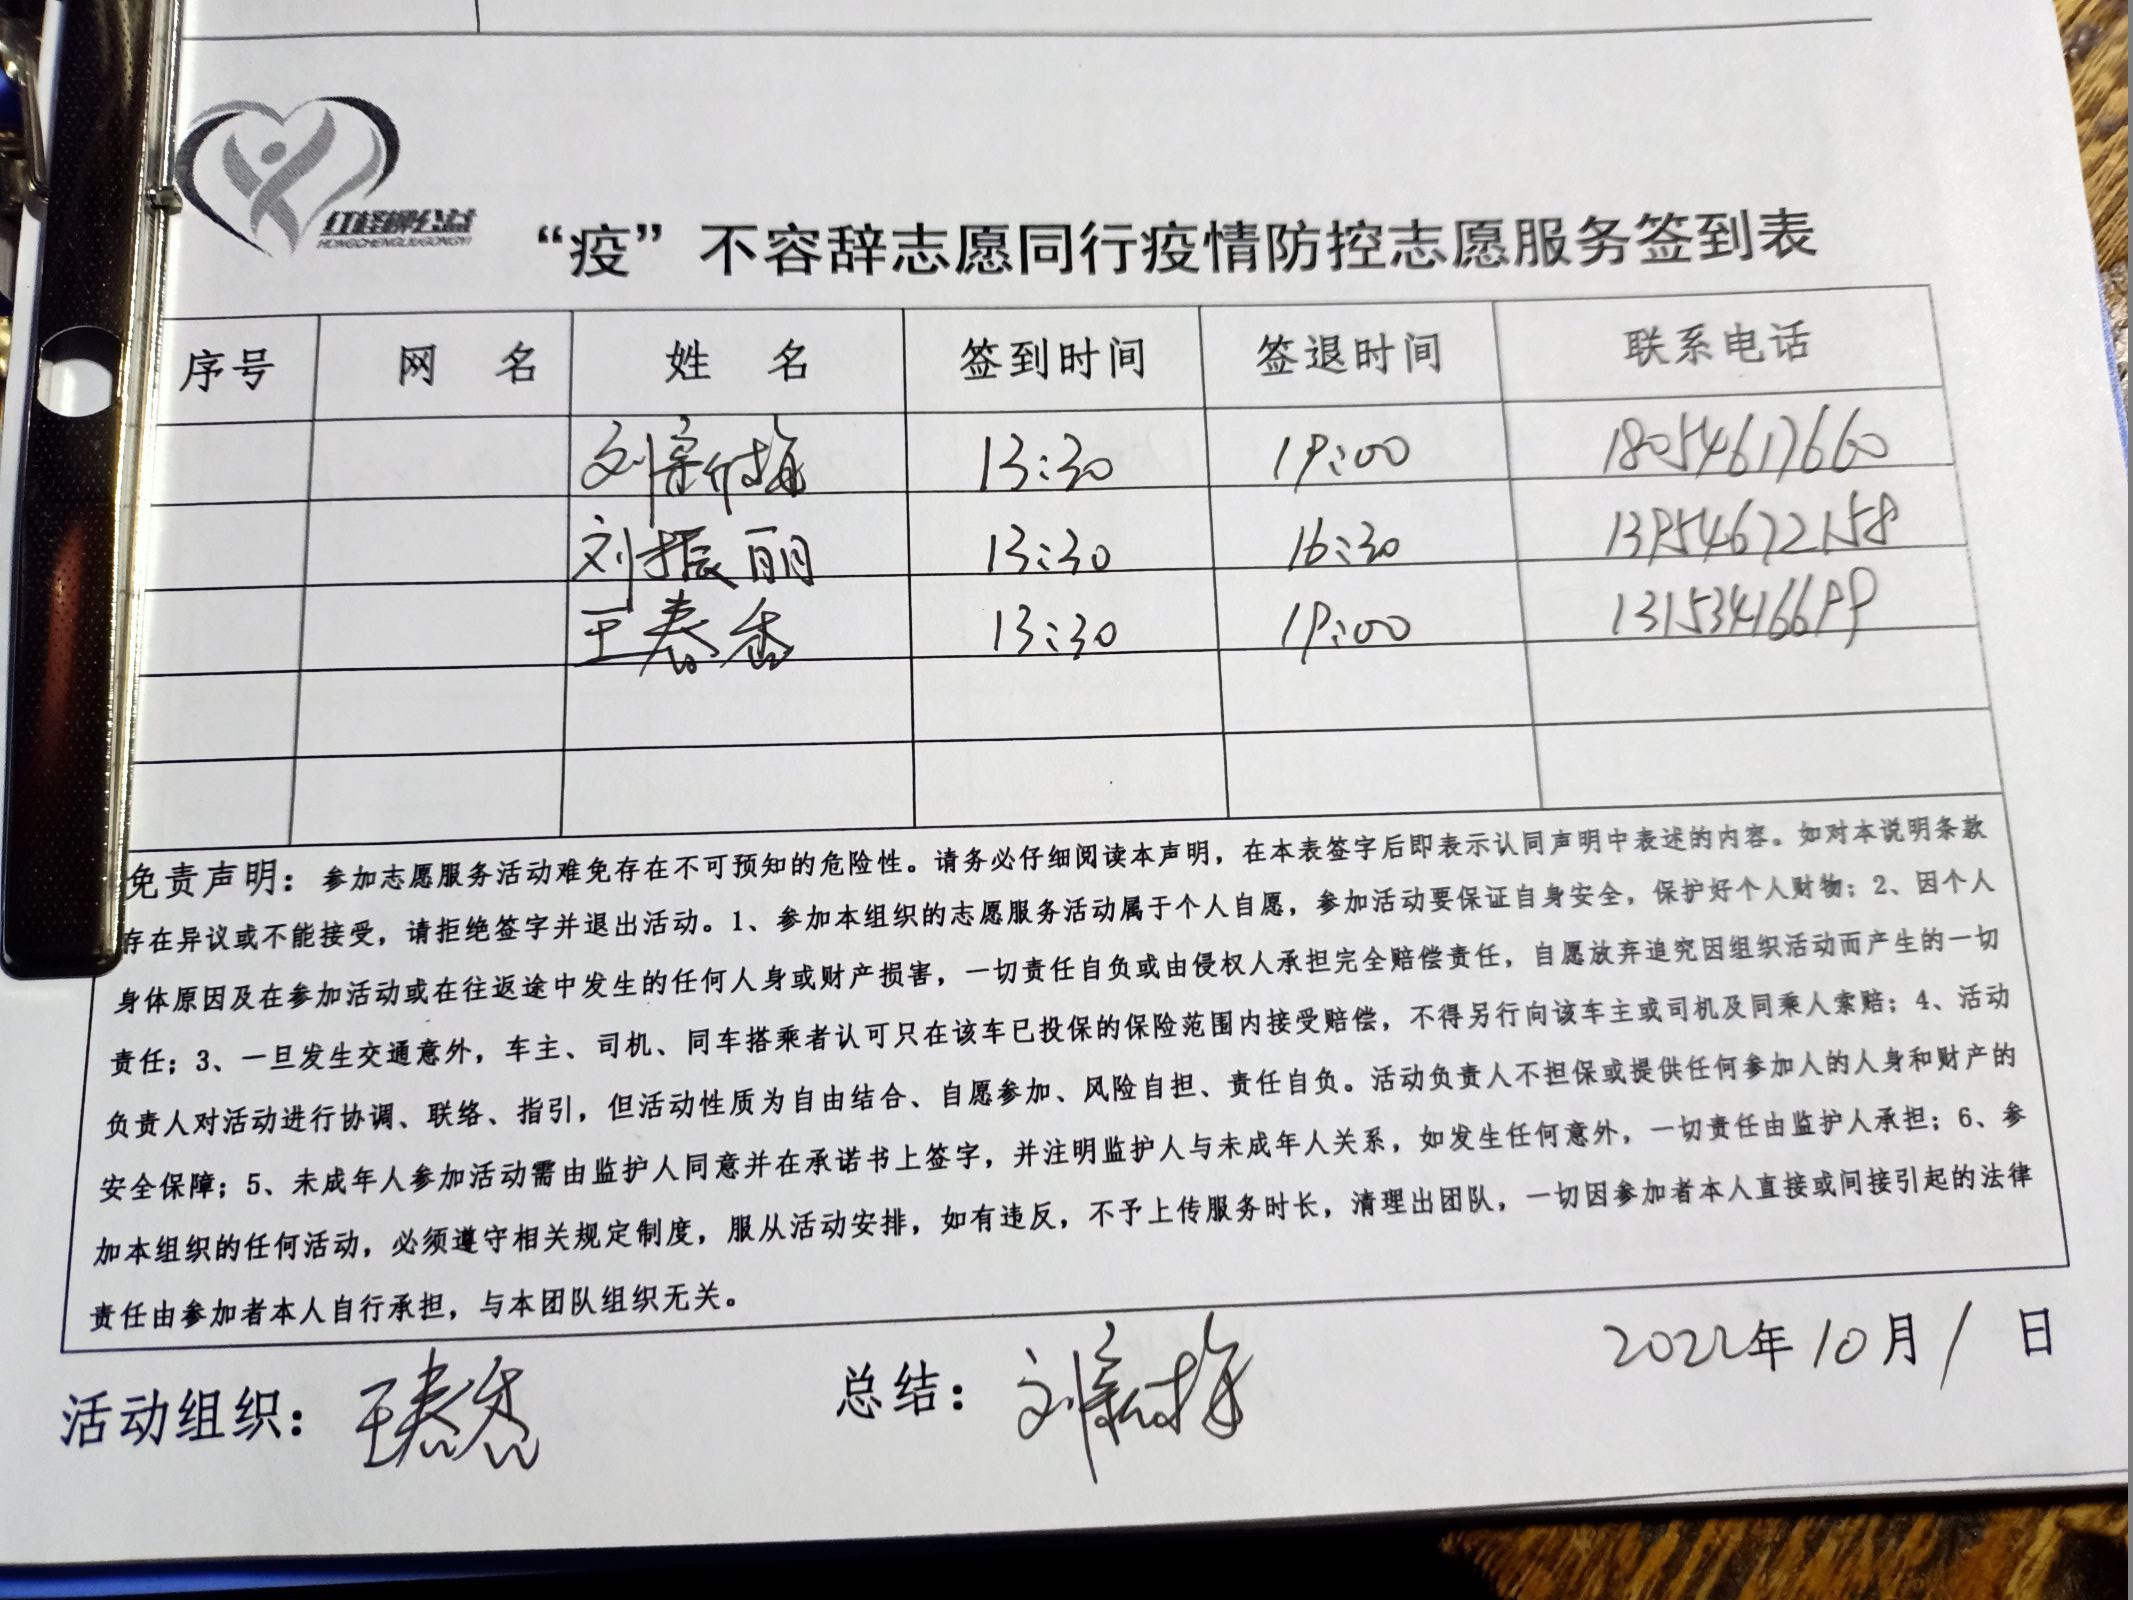 红柽柳公益
HONGCHENGLIUGONGYI
“疫”不容辞志愿同行疫情防控志愿服务签到表
序号 网 名 姓 名 签到时间 签退时间 联系电话
刘新梅 13:30 19:00 18054617660
刘振丽 13:30 16:30 13954672158
王春香 13:30 19:00 13153416699
免责声明：参加志愿服务活动难免存在不可预知的危险性。请务必仔细阅读本声明，在本表签字后即表示认同声明中表述的内容。如对本说明条款
存在异议或不能接受，请拒绝签字并退出活动。1、参加本组织的志愿服务活动属于个人自愿，参加活动要保证自身安全，保护好个人财物；2、因个人
身体原因及在参加活动或在往返途中发生的任何人身或财产损害，一切责任自负或由侵权人承担完全赔偿责任，自愿放弃追究因组织活动而产生的一切
责任；3、一旦发生交通意外，车主、司机、同车搭乘者认可只在该车已投保的保险范围内接受赔偿，不得另行向该车主或司机及同乘人索赔；4、活动
负责人对活动进行协调、联络、指引，但活动性质为自由结合、自愿参加、风险自担、责任自负。活动负责人不担保或提供任何参加人的人身和财产的
安全保障；5、未成年人参加活动需由监护人同意并在承诺书上签字，并注明监护人与未成年人关系，如发生任何意外，一切责任由监护人承担；6、参
加本组织的任何活动，必须遵守相关规定制度，服从活动安排，如有违反，不予上传服务时长，清理出团队，一切因参加者本人直接或间接引起的法律
责任由参加者本人自行承担，与本团队组织无关。
活动组织：王春香 总结：刘新梅 2022年10月1日